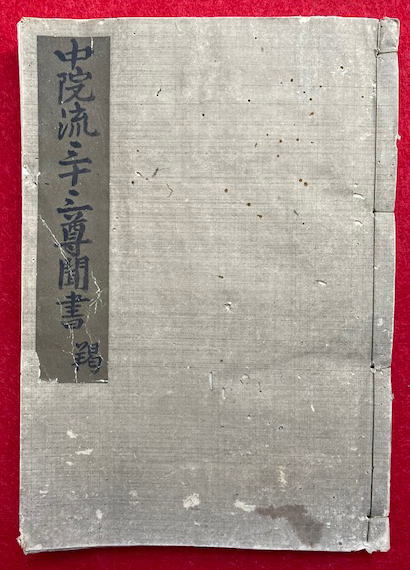 中院流三十三尊聞書 羯